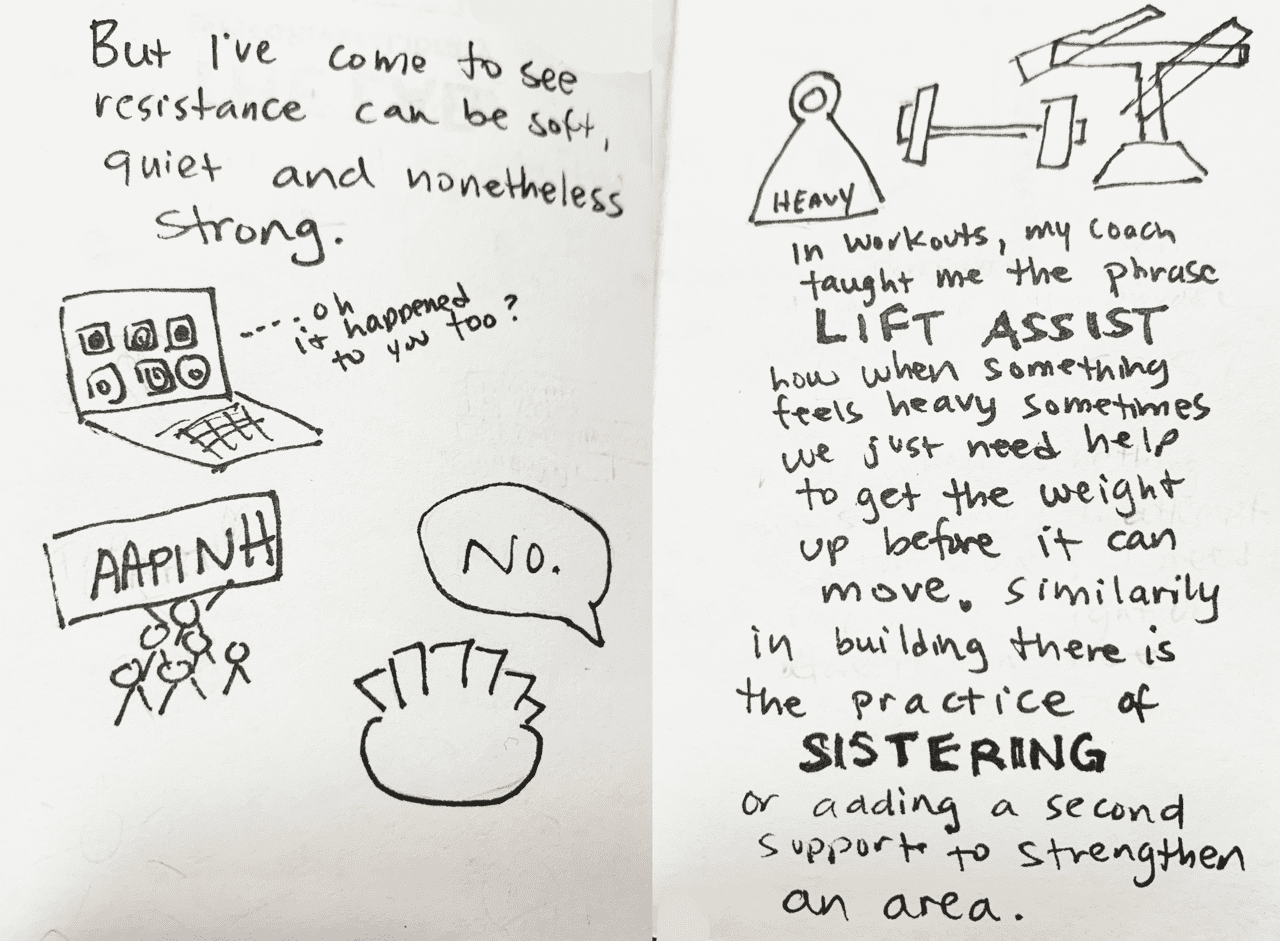 But I've come to see
resistance can be soft,
quiet and nonetheless
strong.
----. oh
it happened
to you too?
AAPINH
No.
HEAVY
in workouts, my coach
taught me the phrase
LIFT ASSIST
how when something
feels heavy sometimes
we just need help
to get the weight
up before it can
move. similarily
in building there is
the practice of
SISTERING
or adding a second
support to strengthen
an area.